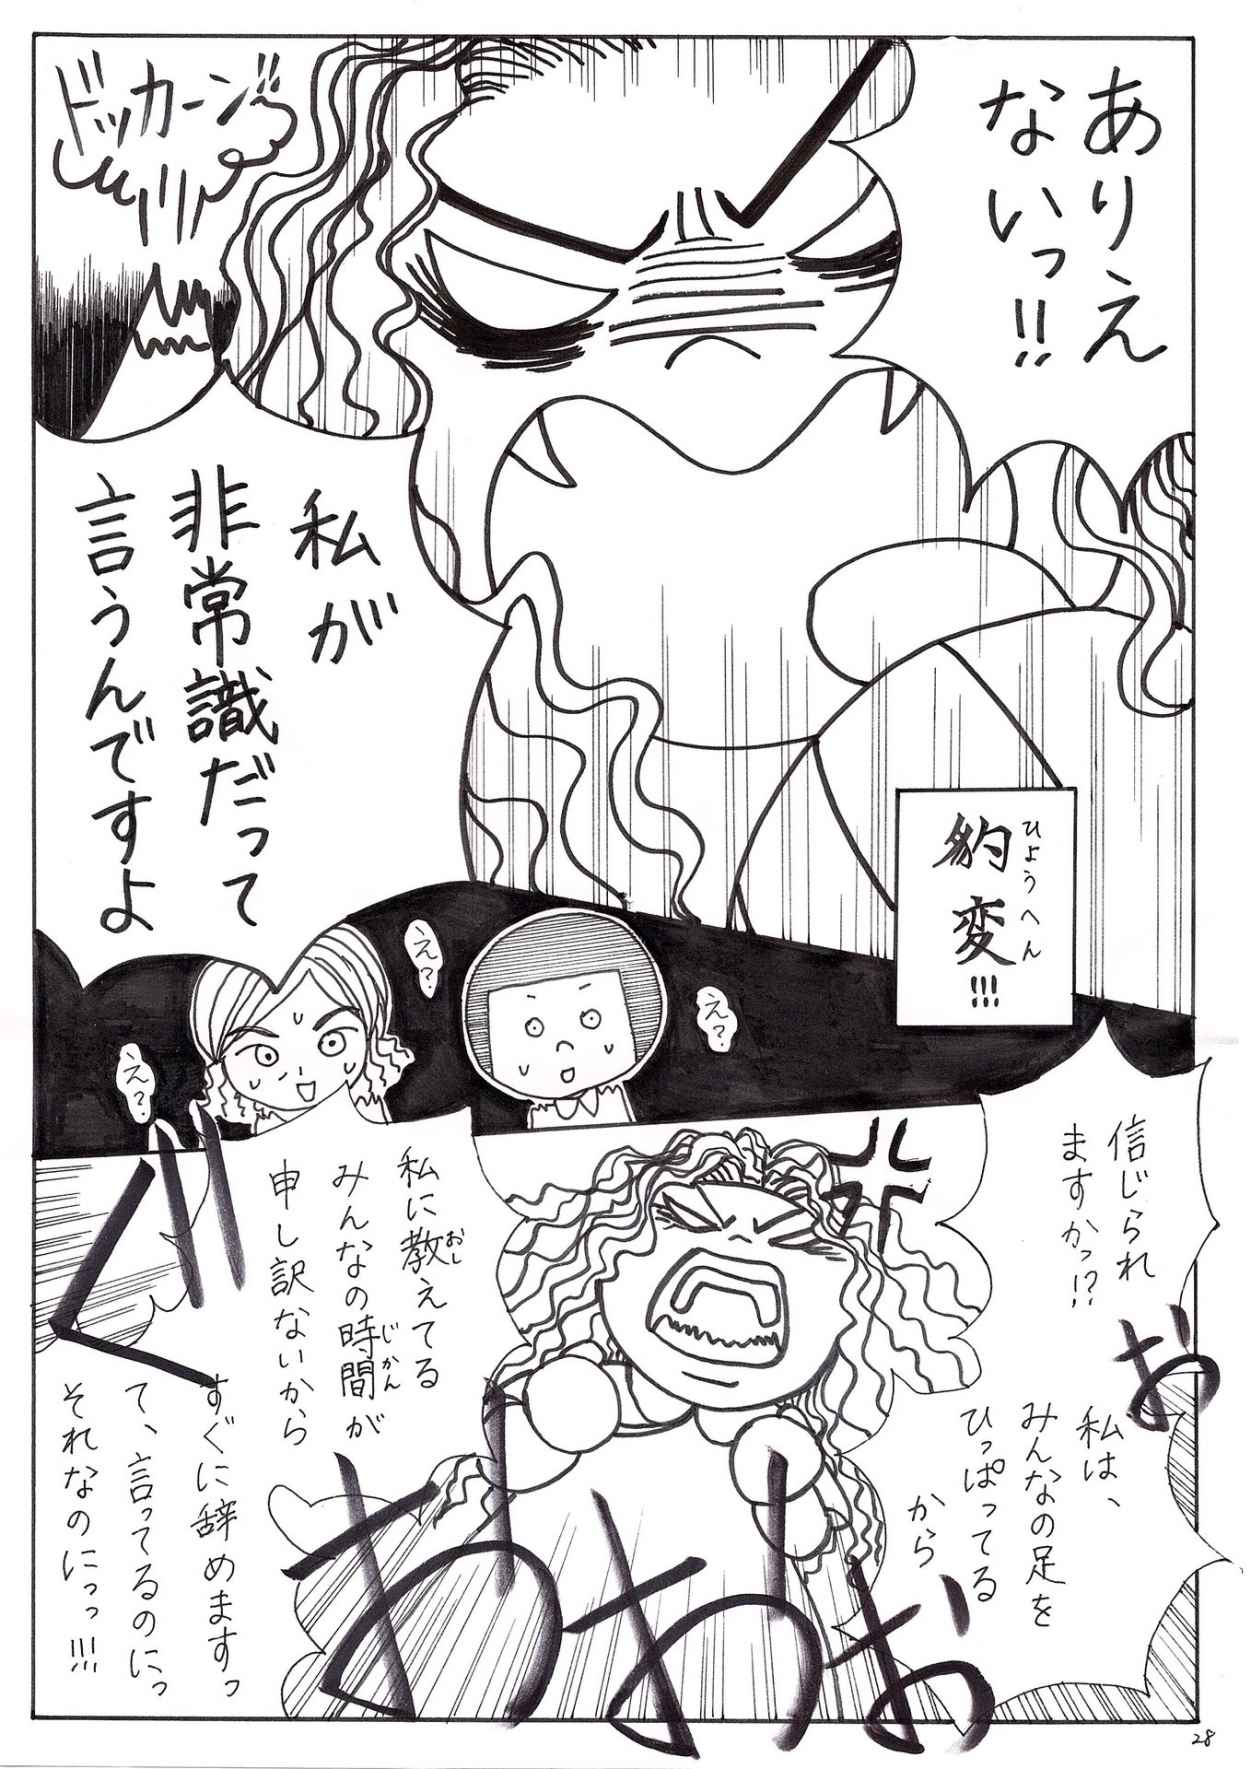 ありえ
ないっ!!
ドッカーン
私が
非常識だって
言うんですよ
豹変!!!
ひょうへん
え?
え?
え?
信じられ
ますかっ!?
私は、
みんなの足を
ひっぱってる
から
私に教えてる
おし
みんなの時間が
じかん
申し訳ないから
すぐに辞めますっ
て、言ってるのにっ
それなのにっっ!!!
おおおお
28